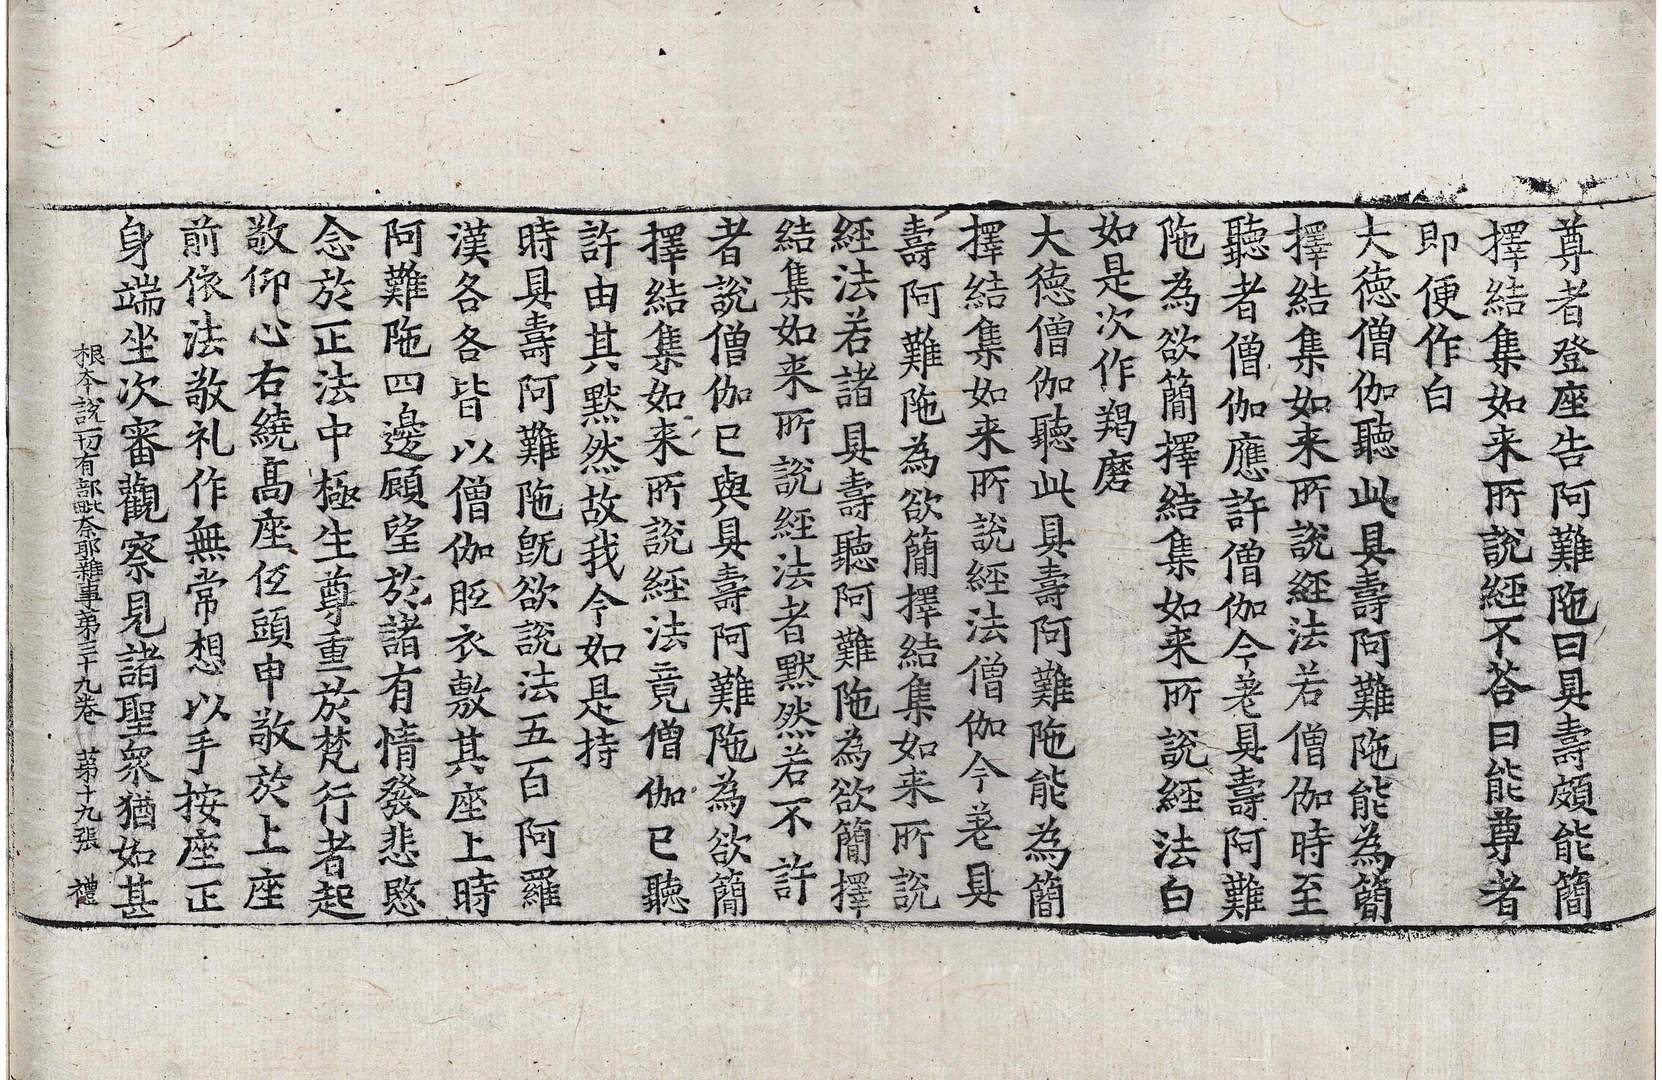 尊者登座告阿難陁曰具壽頗能簡
擇結集如来所說經不荅曰能尊者
即便作白
大德僧伽聽此具壽阿難陁能為簡
擇結集如来所說經法若僧伽時至
聽者僧伽應許僧伽今差具壽阿難
陁為欲簡擇結集如来所說經法白
如是次作羯磨
大德僧伽聽此具壽阿難陁能為簡
擇結集如来所說經法僧伽今差具
壽阿難陁為欲簡擇結集如来所說
經法若諸具壽聽阿難陁為欲簡擇
結集如来所說經法者默然若不許
者說僧伽已與具壽阿難陁為欲簡
擇結集如来所說經法竟僧伽已聽
許由其默然故我今如是持
時具壽阿難陁旣欲說法五百阿羅
漢各各皆以僧伽胝衣敷其座上時
阿難陁四邊顧望於諸有情發悲愍
念於正法中極生尊重於梵行者起
敬仰心右繞髙座伍頭申敬於上座
前依法敬礼作無常想以手按座正
身端坐次審觀察見諸聖衆猶如甚
根本說一切有部毗奈耶雜事第三十九卷 苐十九張 禮